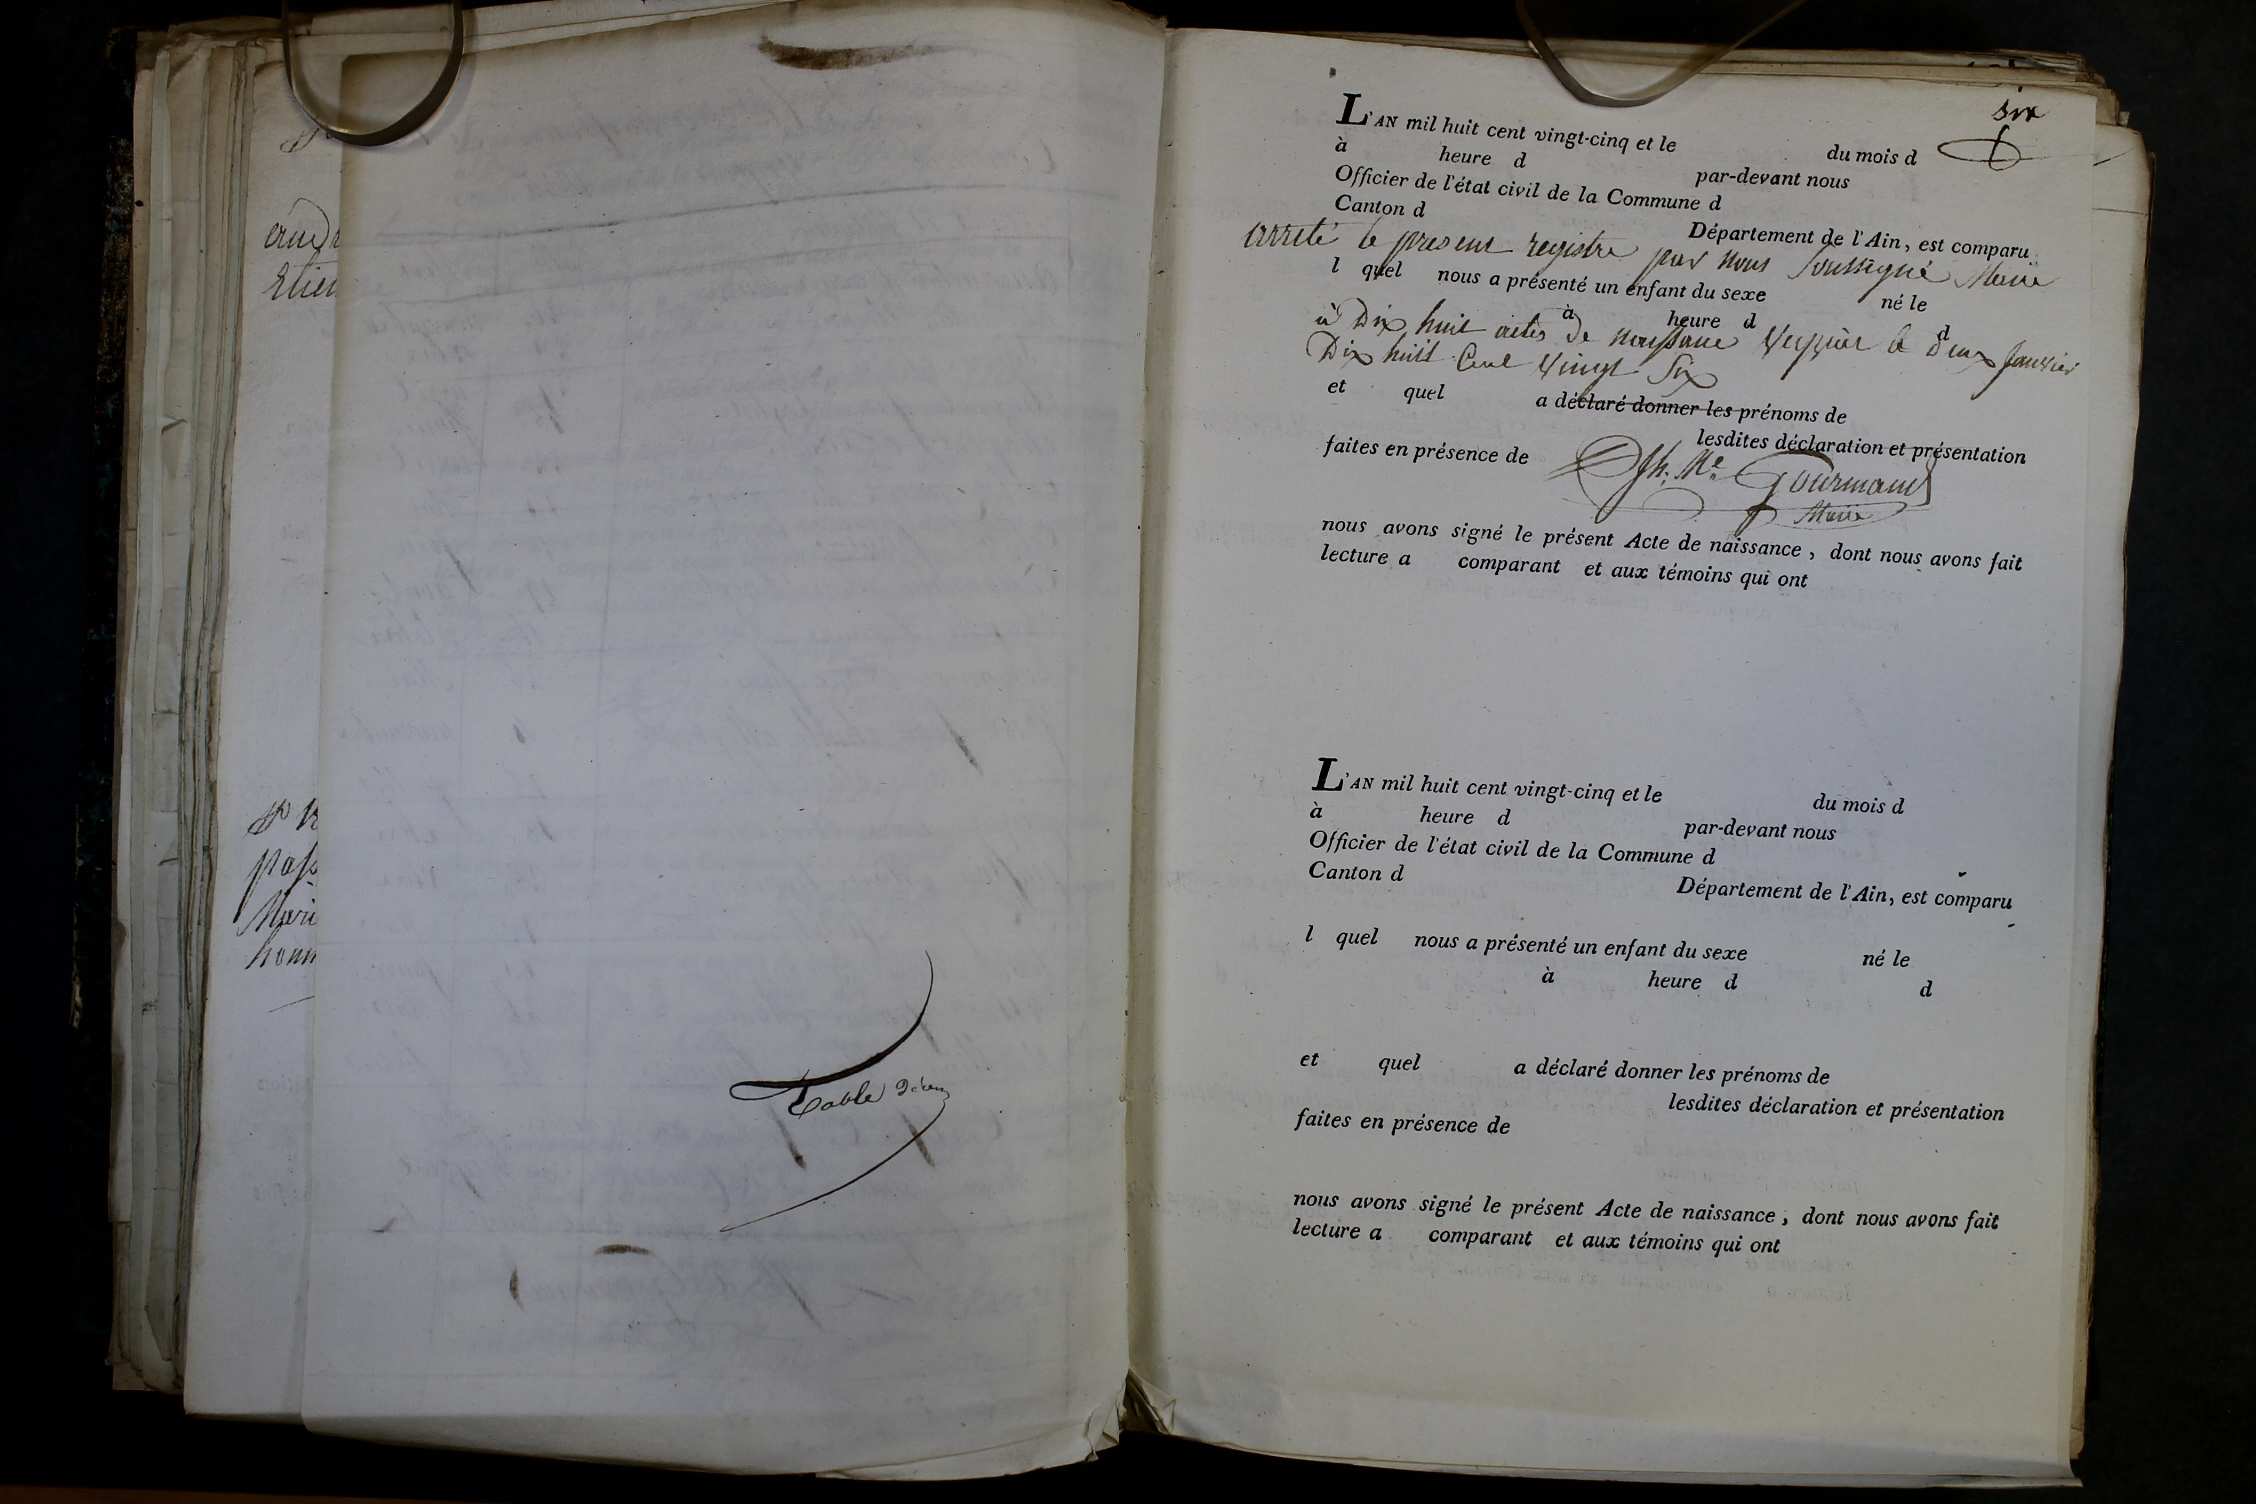 andr
Etien
pass
Mari
honn
Table décen
six
L'AN mil huit cent vingt-cinq et le du mois d
à heure d par-devant nous
Officier de l'état civil de la Commune d
Canton d Département de l'Ain, est comparu
arreté le present registre par nous soussigné Maire
l quel nous a présenté un enfant du sexe né le
à heure d d
à Dix huit actes de naissance Verjon le deux janvier
Dix huit Cent Vingt Six
et quel a déclaré donner les prénoms de
lesdites déclaration et présentation
faites en présence de
Jh. Me Gourmand
Maire
nous avons signé le présent Acte de naissance, dont nous avons fait
lecture a comparant et aux témoins qui ont
L'AN mil huit cent vingt-cinq et le du mois d
à heure d par-devant nous
Officier de l'état civil de la Commune d
Canton d Département de l'Ain, est comparu
l quel nous a présenté un enfant du sexe né le
à heure d d
et quel a déclaré donner les prénoms de
lesdites déclaration et présentation
faites en présence de
nous avons signé le présent Acte de naissance, dont nous avons fait
lecture a comparant et aux témoins qui ont